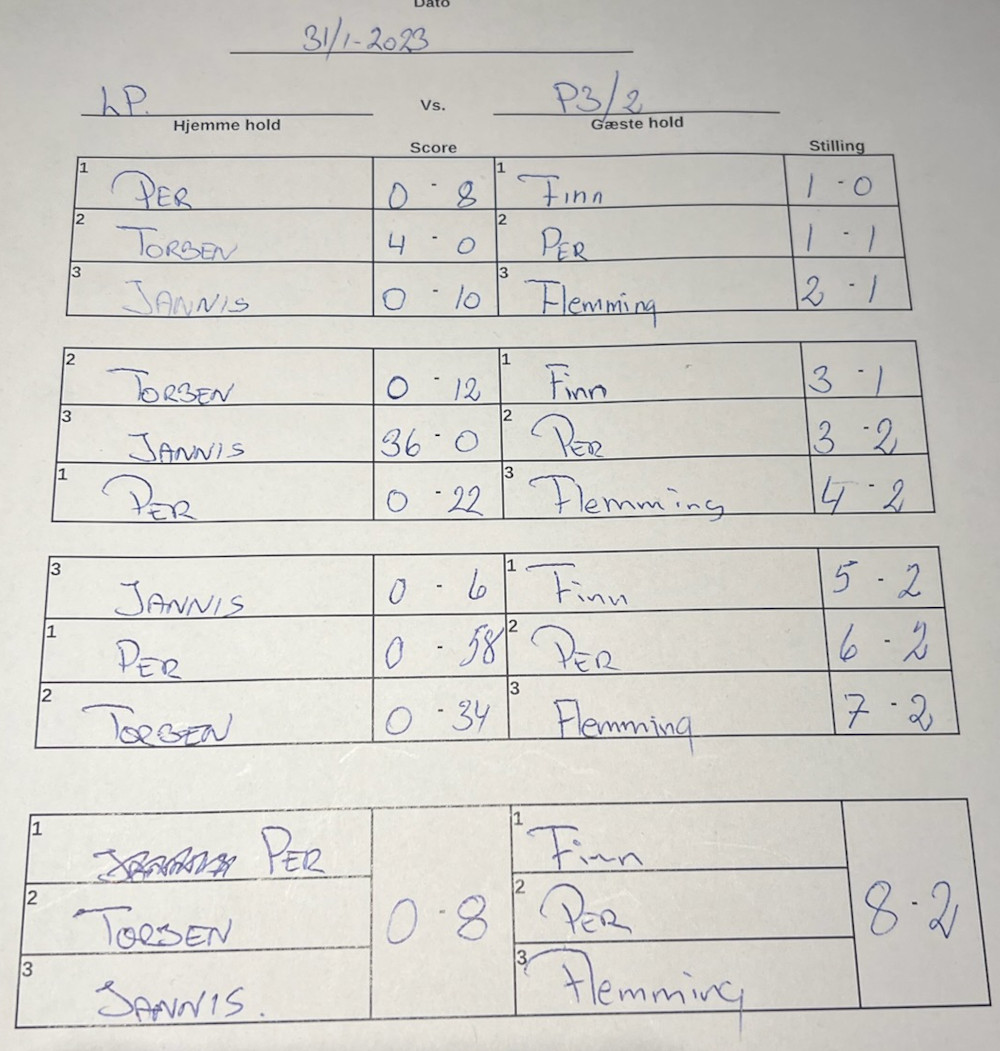 Dato
31/1-2023
LP. Vs. P3/2
Hjemme hold Gæste hold
Score Stilling
1 PER 0 - 8 1 Finn 1 - 0
2 TORBEN 4 - 0 2 PER 1 - 1
3 JANNIS 0 - 10 3 Flemming 2 - 1
2 TORBEN 0 - 12 1 Finn 3 - 1
3 JANNIS 36 - 0 2 PER 3 - 2
1 PER 0 - 22 3 Flemming 4 - 2
3 JANNIS 0 - 6 1 Finn 5 - 2
1 PER 0 - 58 2 PER 6 - 2
2 TORBEN 0 - 34 3 Flemming 7 - 2
1 PER 1 Finn
2 TORBEN 0 - 8 2 PER 8 - 2
3 JANNIS. 3 Flemming